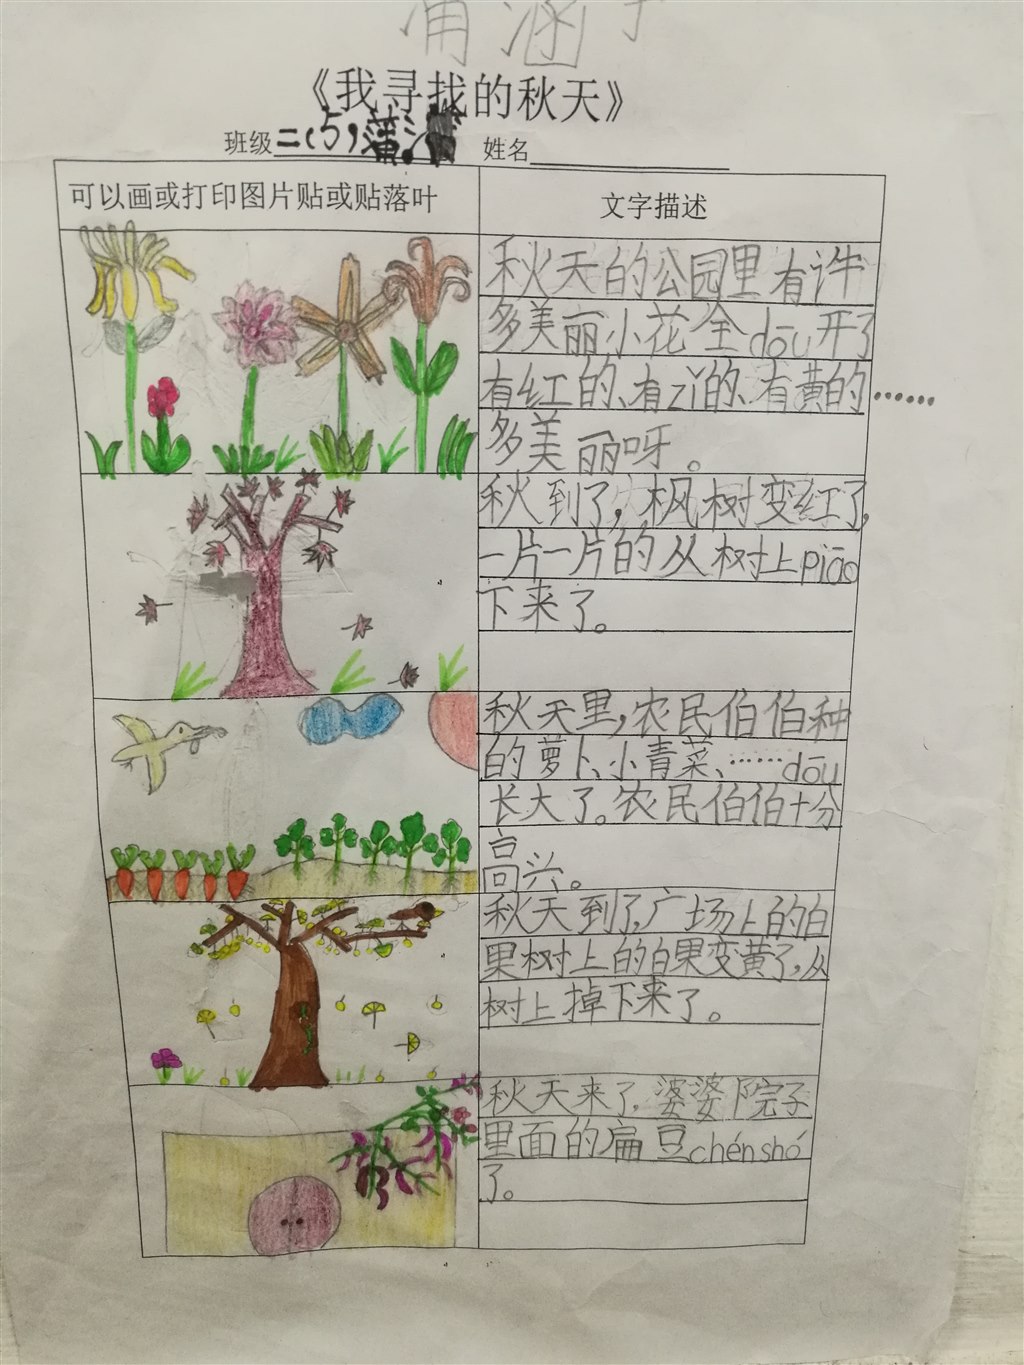 涵
《我寻找的秋天》
班级二(5)蒲 姓名
可以画或打印图片贴或贴落叶
文字描述
秋天的公园里有许
多美丽小花全dōu开了
有红的、有zǐ的、有黄的……
多美丽呀。
秋到了,枫树变红了,
一片一片的从树上piāo
下来了。
秋天里,农民伯伯种
的萝卜、小青菜、……dōu
长大了。农民伯伯十分
高兴。
秋天到了,广场上的白
果树上的白果变黄了,从
树上掉下来了。
秋天来了,婆婆院子
里面的扁豆chénshó
了。